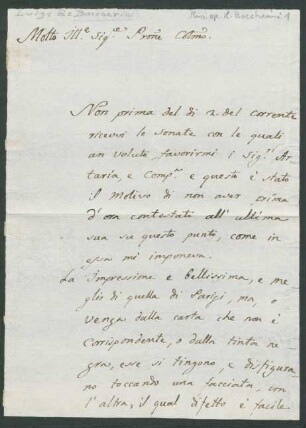 Luigi Boccherini
Man. op. L. Boccherini 1
Molto Ill.e Sig.re Prone Colmo.
Non prima del di 2. del corrente
ricevei le Sonate con le quali
an voluto favorirmi i Sig.ri Ar-
taria, e Comp.ni e questo è stato
il Motivo di non aver prima
d'ora contestato all'ultima
sua su questo punto, come in
essa mi imponeva.
La Impressione e bellissima, e me
glio di quella di Parigi, ma, o
venga dalla carta che non è
Corrispondente, o dalla tinta ne
gra, esse si tingono, e disfigura
no toccando una facciata, con
l'altra, il qual difetto è facile